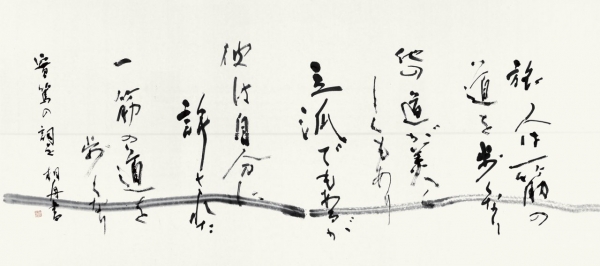 旅人は一筋の
道を歩くなり
他の道が美
しくもあり
立派でもあるが
彼は自分に
許された
一筋の道を
歩くなり
實篤の詞